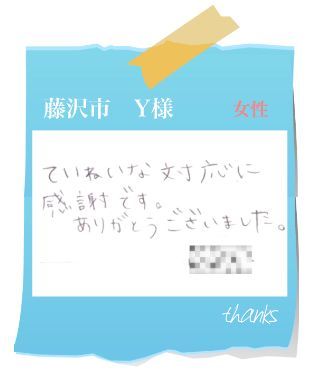 藤沢市　Y様　女性
ていねいな対応に
感謝です。
ありがとうございました。
thanks